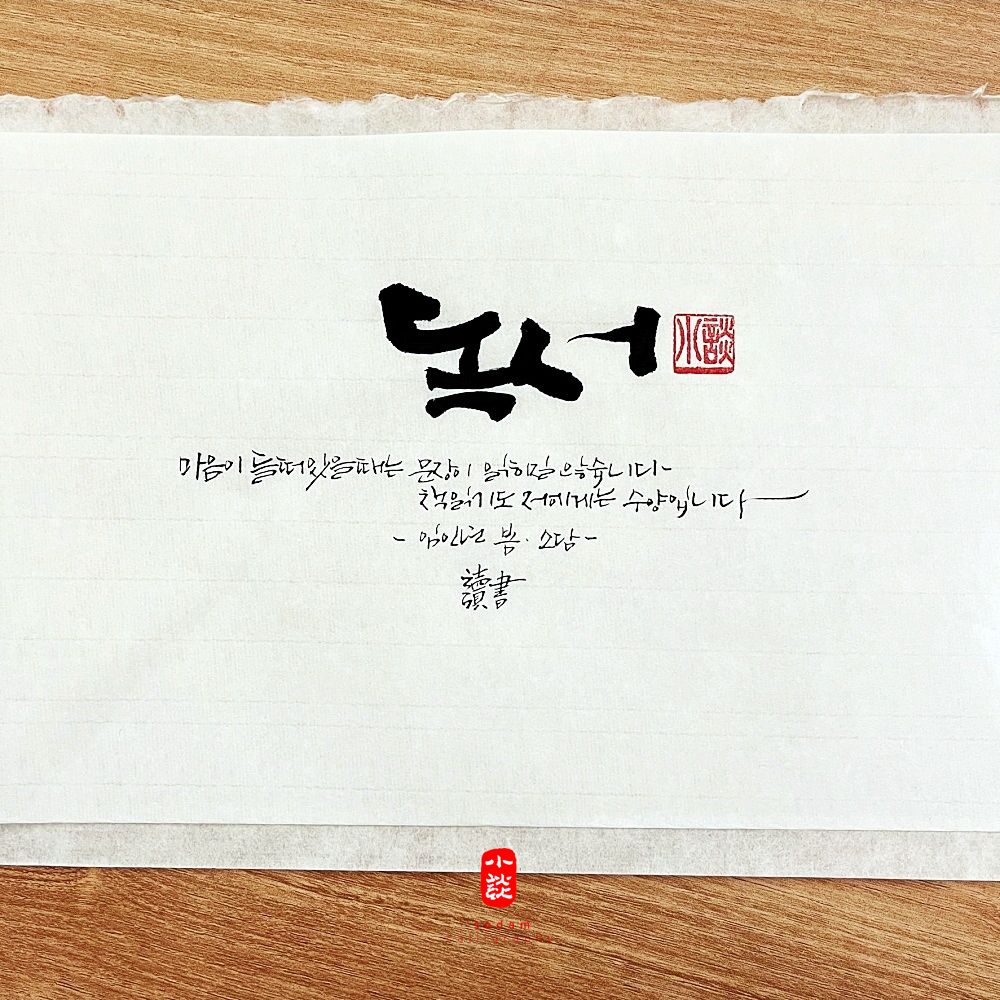 독서
小談
마음이 들떠있을때는 문장이 읽히질 않습니다
책읽기도 저에게는 수양입니다
- 임인년 봄. 소담 -
讀書
小談
sodam